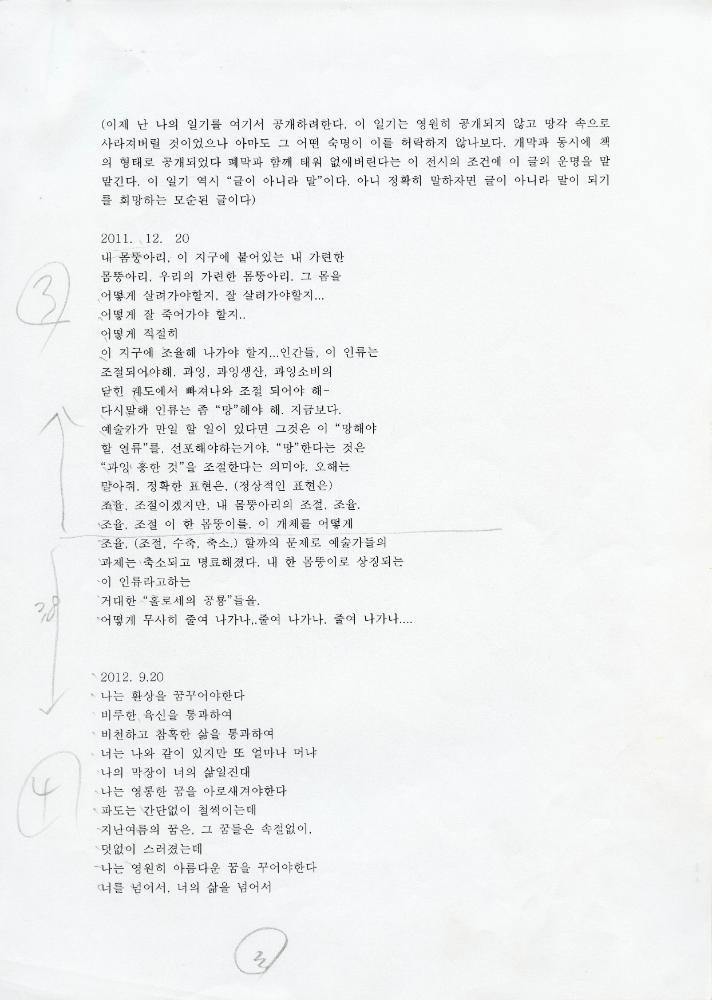 (이제 난 나의 일기를 여기서 공개하려한다. 이 일기는 영원히 공개되지 않고 망각 속으로
사라져버릴 것이었으나 아마도 그 어떤 숙명이 이를 허락하지 않나보다. 개막과 동시에 책
의 형태로 공개되었다 폐막과 함께 태워 없애버린다는 이 전시의 조건에 이 글의 운명을 맡
맡긴다. 이 일기 역시 “글이 아니라 말”이다. 아니 정확히 말하자면 글이 아니라 말이 되기
를 희망하는 모순된 글이다)
2011. 12. 20
내 몸뚱아리, 이 지구에 붙어있는 내 가련한
몸뚱아리, 우리의 가련한 몸뚱아리. 그 몸을
어떻게 살려가야할지, 잘 살려가야할지...
어떻게 잘 죽어가야 할지..
어떻게 적절히
이 지구에 조율해 나가야 할지...인간들, 이 인류는
조절되어야해. 과잉, 과잉생산, 과잉소비의
닫힌 궤도에서 빠져나와 조절 되어야 해-
다시말해 인류는 좀 “망”해야 해. 지금보다.
예술가가 만일 할 일이 있다면 그것은 이 “망해야
할 인류”를, 선포해야하는거야. “망”한다는 것은
“과잉 흥한 것”을 조절한다는 의미야. 오해는
말아줘. 정확한 표현은, (정상적인 표현은)
조율, 조절이겠지만, 내 몸뚱아리의 조절, 조율.
조율, 조절 이 한 몸뚱이를. 이 개체를 어떻게
조율, (조절, 수축, 축소.) 할까의 문제로 예술가들의
과제는 축소되고 명료해졌다. 내 한 몸뚱이로 상징되는
이 인류라고하는
거대한 “홀로세의 공룡”들을.
어떻게 무사히 줄여 나가나,.줄여 나가나. 줄여 나가나....
2012. 9.20
나는 환상을 꿈꾸어야한다
비루한 육신을 통과하여
비천하고 참혹한 삶을 통과하여
너는 나와 같이 있지만 또 얼마나 머냐
나의 막장이 너의 삶일진대
나는 영롱한 꿈을 아로새겨야한다
파도는 간단없이 철썩이는데
지난여름의 꿈은, 그 꿈들은 속절없이,
덧없이 스러졌는데
나는 영원히 아름다운 꿈을 꾸어야한다
너를 넘어서, 너의 삶을 넘어서
3
4
2